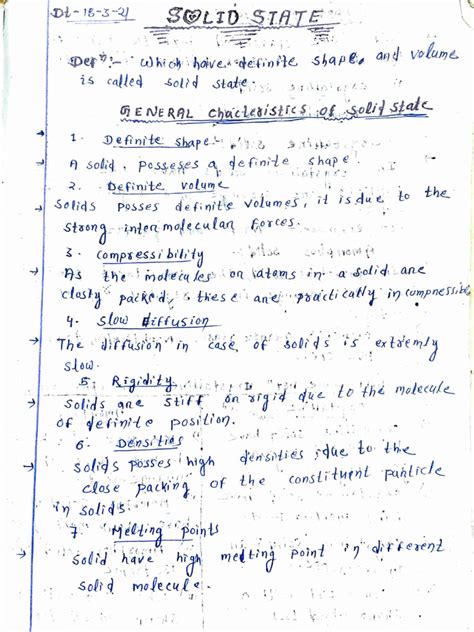 Dt-18-3-21
SOLID STATE
Defn:- Which have definite shape, and volume
is called solid state.
GENERAL Chacteristics of solid state
1. Definite shape
A solid. posseses a definite shape
2. Definite volume
Solids posses definite volumes, it is due to the
strong intermolecular forces.
3. compressibility
As the molecules or atoms in a solid are
closty packed, these are practically incompressible
4. slow diffusion
The diffusion in case of solids is extremly
slow.
5. Rigidity
Solids are stiff or rigid due to the molecule
of definite position.
6. Densities
Solids posses high densities due to the
close packing of the constituent particle
in solids
7. Melting points
Solid have high melting point in different
solid molecule.